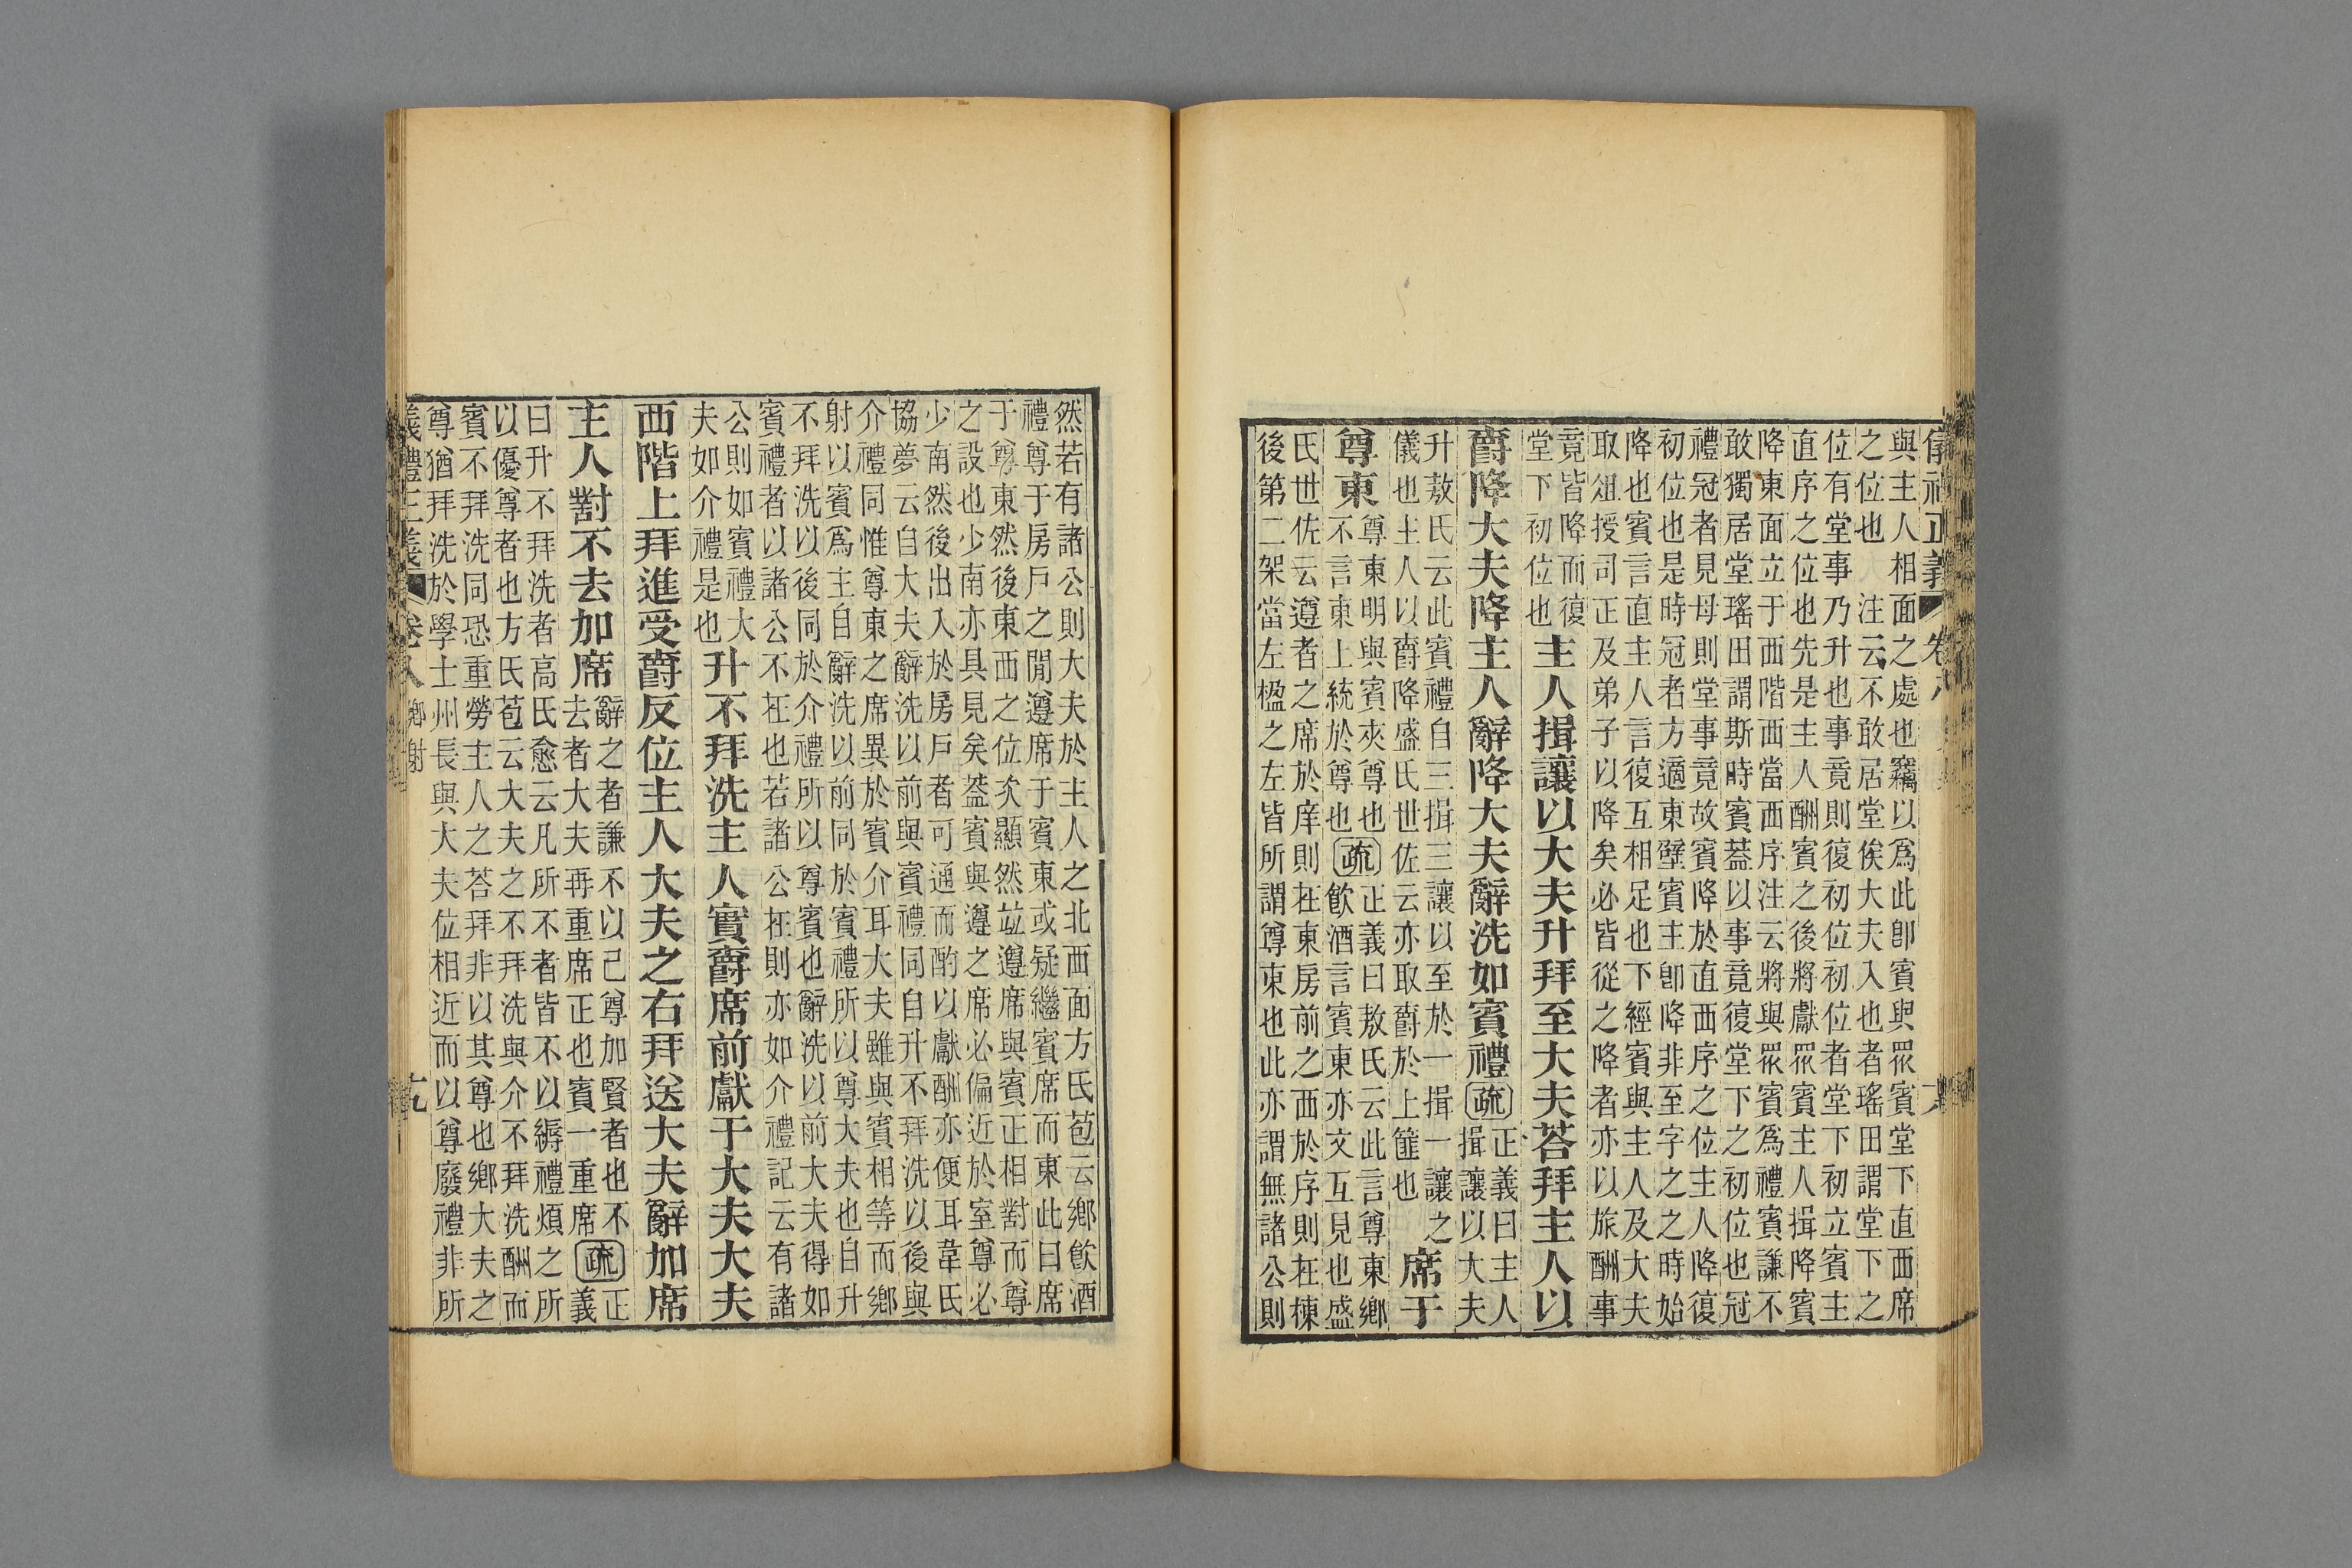 儀禮正義 卷八
與主人相面之處也竊以爲此卽賓與眾賓堂下直西席
之位也注云不敢居堂俟大夫入也者瑤田謂堂下之
位有堂事乃升也事竟則復初位初位者堂下初立賓主
直序之位也先是主人酬賓之後將獻眾賓主人揖降賓
降東面立于西階西當西序注云將與眾賓爲禮賓謙不
敢獨居堂瑤田謂斯時賓蓋以事竟復堂下之初位也冠
禮冠者見母則堂事竟故賓降於直西序之位主人降復
初位也是時冠者方適東壁賓主卽降非至字之之時始
降也賓言直主人言復互相足也下經賓與主人及大夫
取俎授司正及弟子以降矣必皆從之降者亦以旅酬事
竟皆降而復
堂下初位也
主人揖讓以大夫升拜至大夫荅拜主人以
爵降大夫降主人辭降大夫辭洗如賓禮
疏
正義曰主人
揖讓以大夫
升敖氏云此賓禮自三揖三讓以至於一揖一讓之
儀也主人以爵降盛氏世佐云亦取爵於上篚也
席于
尊東
尊東明與賓夾尊也
不言東上統於尊也
疏
正義曰敖氏云此言尊東鄉
飲酒言賓東亦文互見也盛
氏世佐云遵者之席於庠則在東房前之西於序則在棟
後第二架當左楹之左皆所謂尊東也此亦謂無諸公則
然若有諸公則大夫於主人之北西面方氏苞云鄉飲酒
禮尊于房戶之閒遵席于賓東或疑繼賓席而東此曰席
于尊東然後東西之位次顯然竝遵席與賓正相對而尊
之設也少南亦具見矣蓋賓與遵之席必偏近於室尊必
少南然後出入於房戶者可通而酌以獻酬亦便耳韋氏
協夢云自大夫辭洗以前與賓禮同自升不拜洗以後與
介禮同惟尊東之席異於賓介耳大夫雖與賓相等而鄉
射以賓爲主自辭洗以前同於賓禮所以尊大夫也自升
不拜洗以後同於介禮所以尊賓也辭洗以前大夫得如
賓禮者以諸公不在也若諸公在則亦如介禮記云有諸
公則如賓禮大
夫如介禮是也
升不拜洗主人實爵席前獻于大夫大夫
西階上拜進受爵反位主人大夫之右拜送大夫辭加席
主人對不去加席
辭之者謙不以己尊加賢者也不
去者大夫再重席正也賓一重席
疏
正
義
曰升不拜洗者高氏愈云凡所不者皆不以縟禮煩之所
以優尊者也方氏苞云大夫之不拜洗與介不拜洗酬而
賓不拜洗同恐重勞主人之荅拜非以其尊也鄉大夫之
尊猶拜洗於學士州長與大夫位相近而以尊廢禮非所
儀禮正義 卷八 鄉射 十九